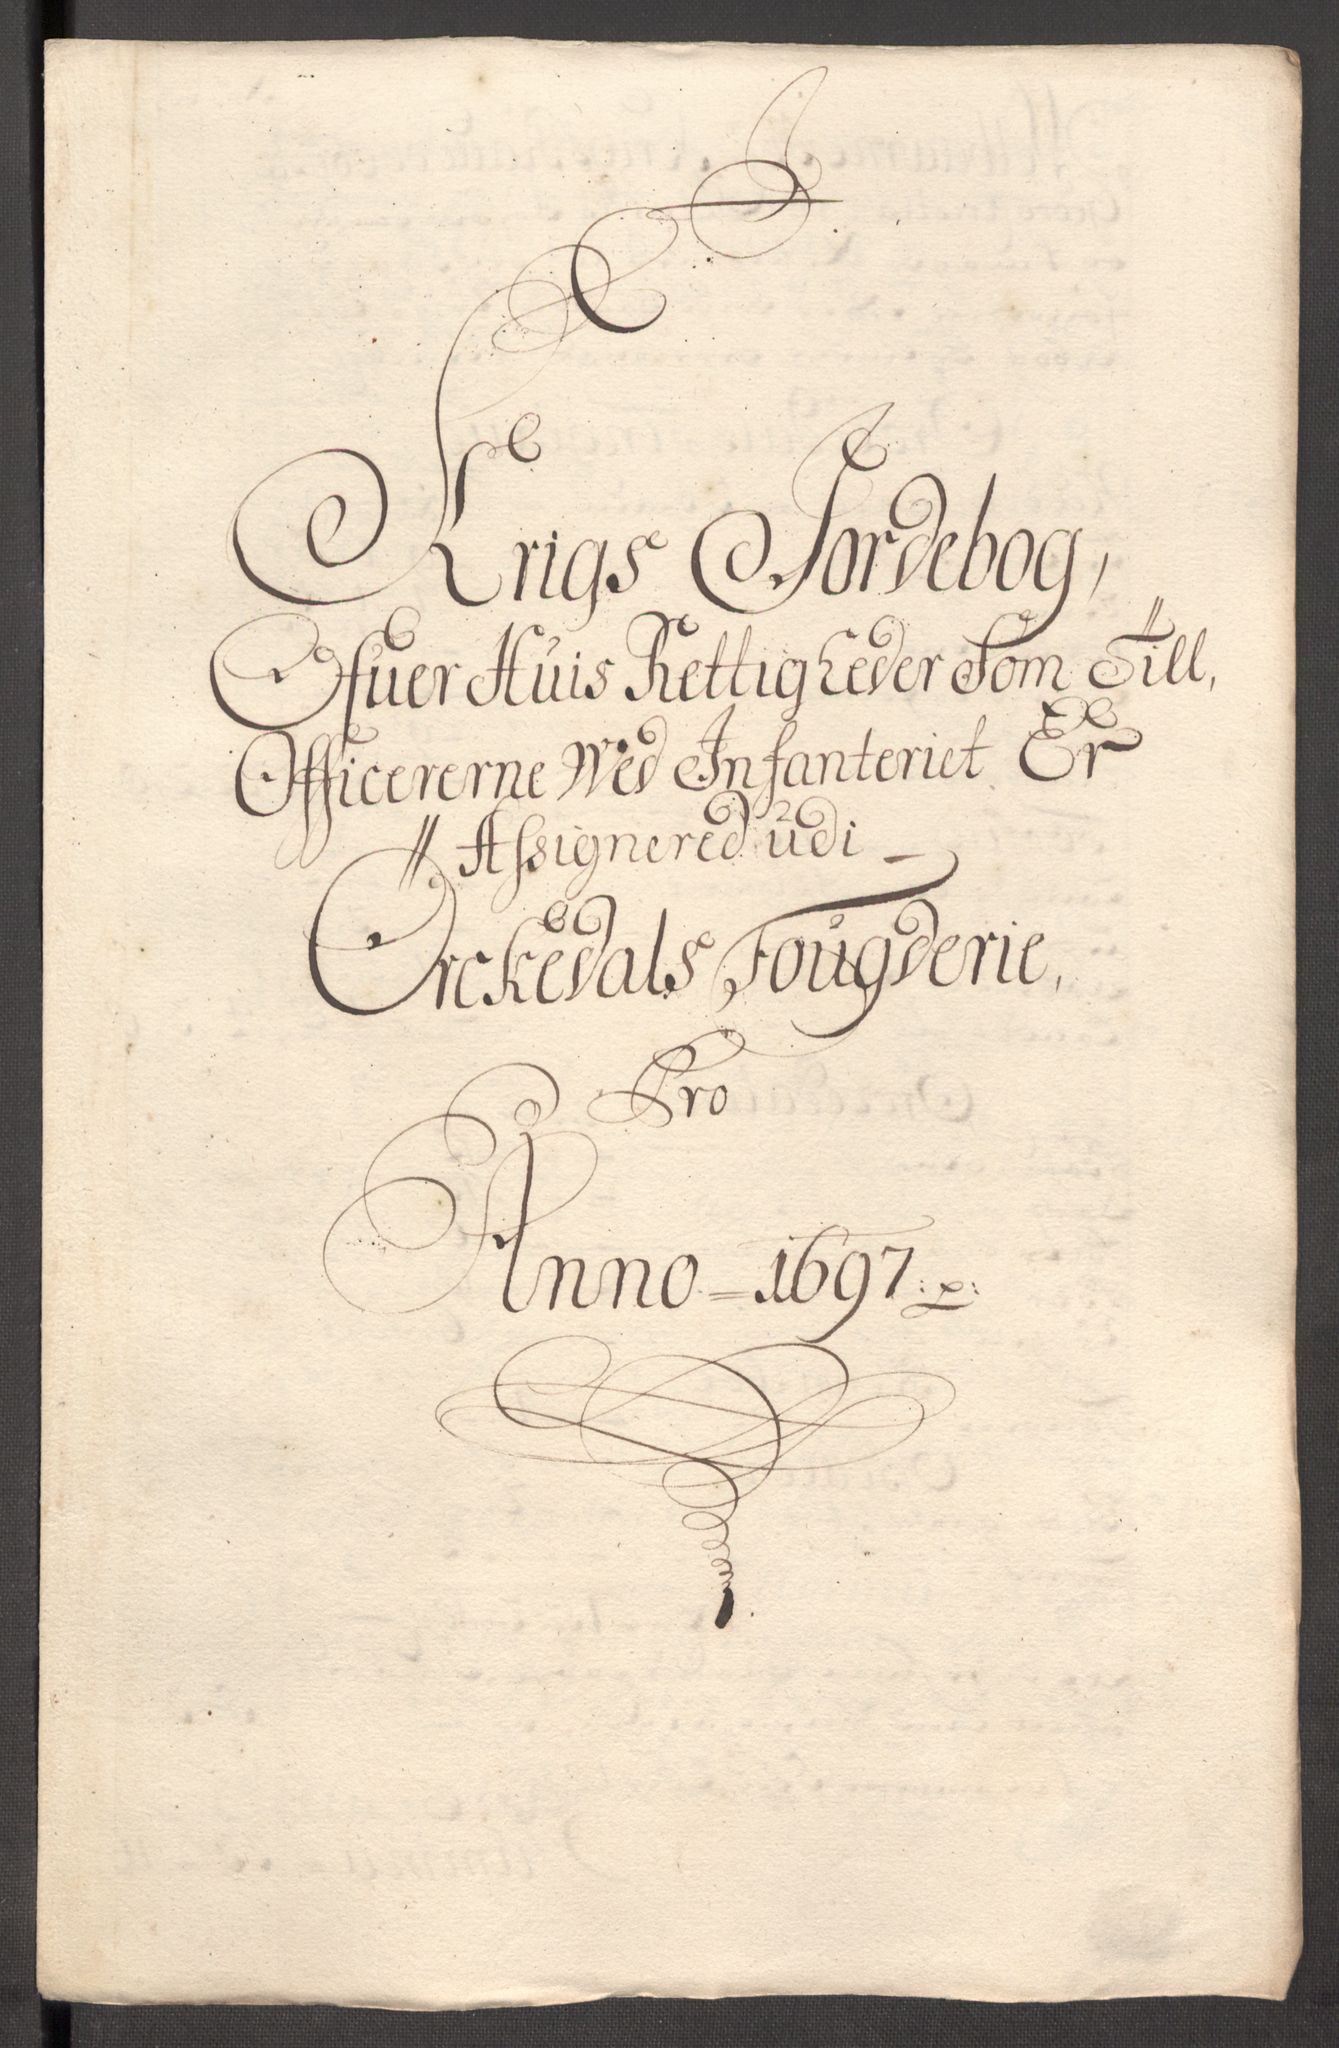 Krigs Jordebog,
Ofuer Huis Rettigheder Som Till,
Officererne Wed Infanteriet Er
Assignered udi
Orckedals Fougderie,
Pro
Anno = 1697